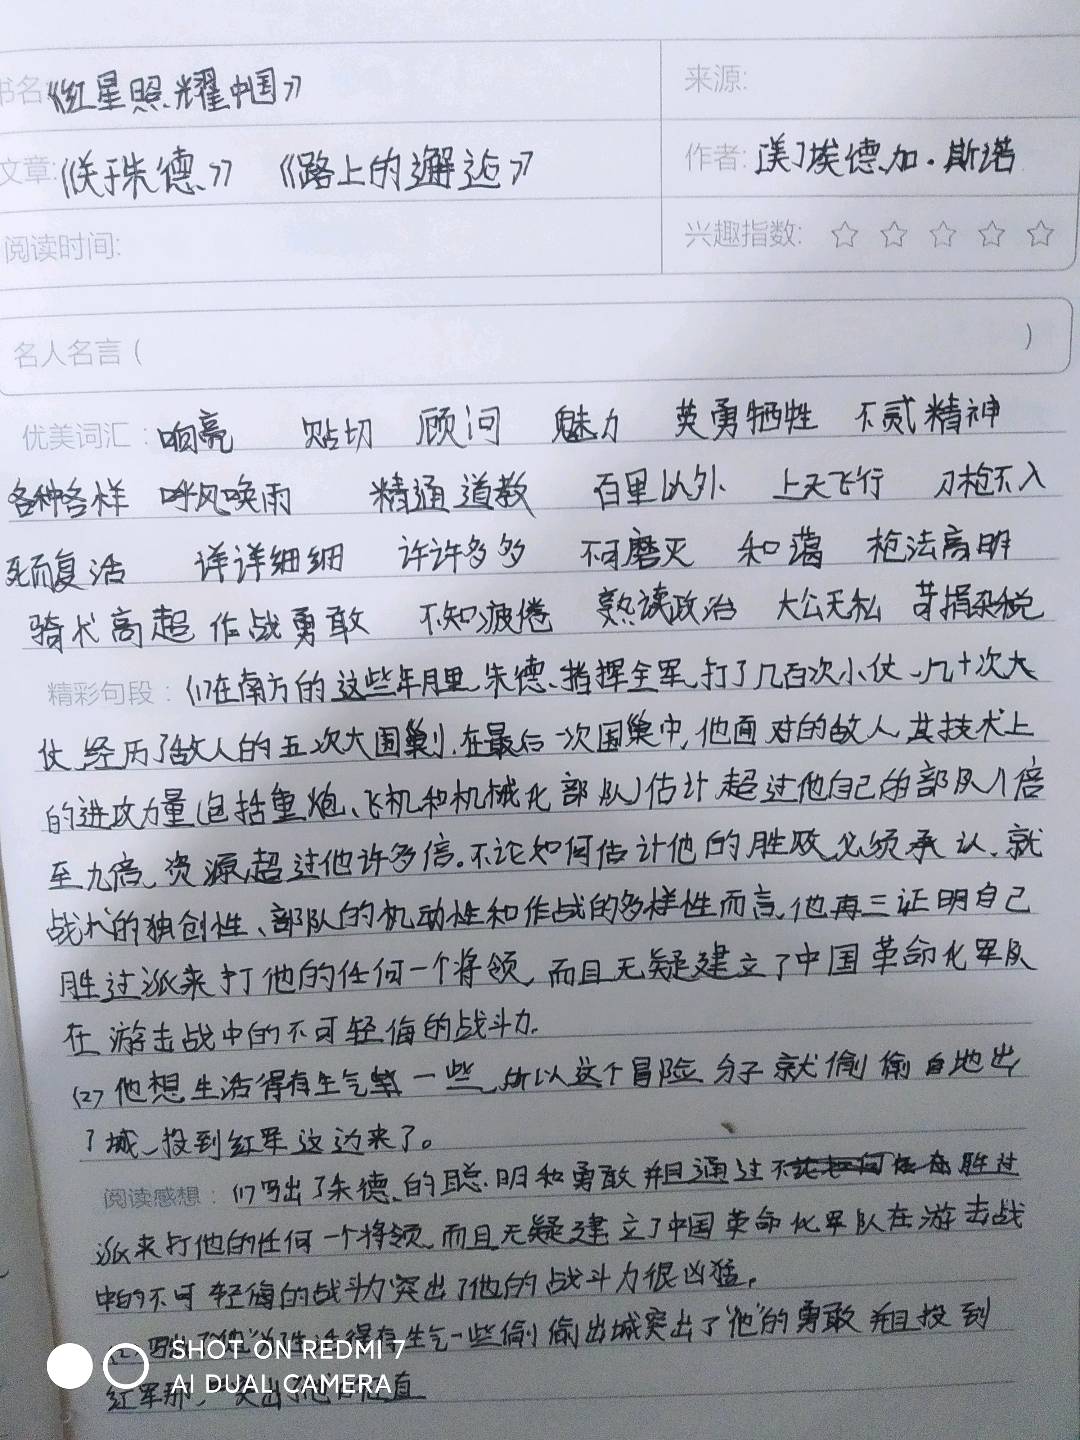 书名:《红星照耀中国》 来源:
文章:《关于朱德》 《路上的邂逅》 作者:[美]埃德加·斯诺
阅读时间: 兴趣指数: ☆ ☆ ☆ ☆ ☆
名人名言( )
优美词汇: 响亮 贴切 顾问 魅力 英勇牺牲 不贰精神
各种各样 呼风唤雨 精通道教 百里以外 上天飞行 刀枪不入
死而复活 详详细细 许许多多 不可磨灭 和蔼 枪法高明
骑术高超 作战勇敢 不知疲倦 熟读政治 大公无私 苛捐杂税
精彩句段: (1)在南方的这些年月里,朱德、指挥全军,打了几百次小仗,几十次大
仗,经历了敌人的五次大围剿,在最后一次围巢中,他面对的敌人,其技术上
的进攻力量(包括重炮、飞机和机械化部队)估计超过他自己的部队八倍
至九倍,资源超过他许多倍。不论如何估计他的胜败,必须承认,就
战术的独创性、部队的机动性和作战的多样性而言,他再三证明自己
胜过派来打他的任何一个将领,而且无疑建立了中国革命化军队
在游击战中的不可轻侮的战斗力.
(2)他想生活得有生气 一些,所以这个冒险分子就偷偷自地出
了城,投到红军这边来了。
阅读感想: (1)写出了朱德、的聪明和勇敢并且通过 胜过
派来打他的任何一个将领,而且无疑建立了中国革命化军队在游击战
中的不可轻侮的战斗力突出了他的战斗力很凶猛.
生活得有生气一些偷偷出城突出了"他"的勇敢并且投到
红军那,
SHOT ON REDMI 7
AI DUAL CAMERA